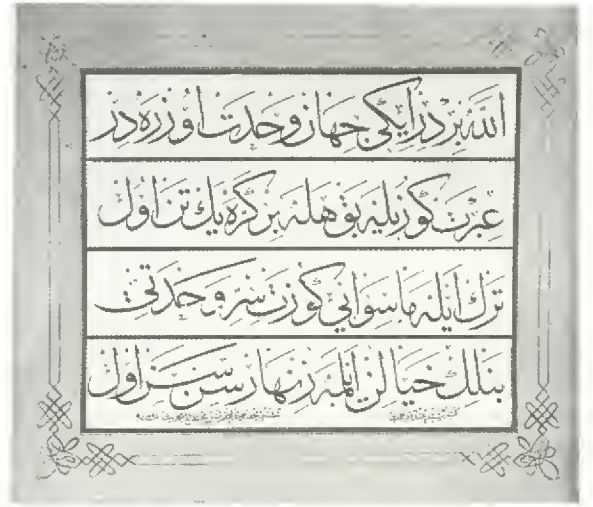 اللّه بردر ايكى جهان وحدت اوزره در
عبرت كوزيله بق هله بر كره يك تن اول
ترك ايله ماسوانى كوزت سر وحدتى
بنلك خيالن ايلمه زنهار سن سن اول